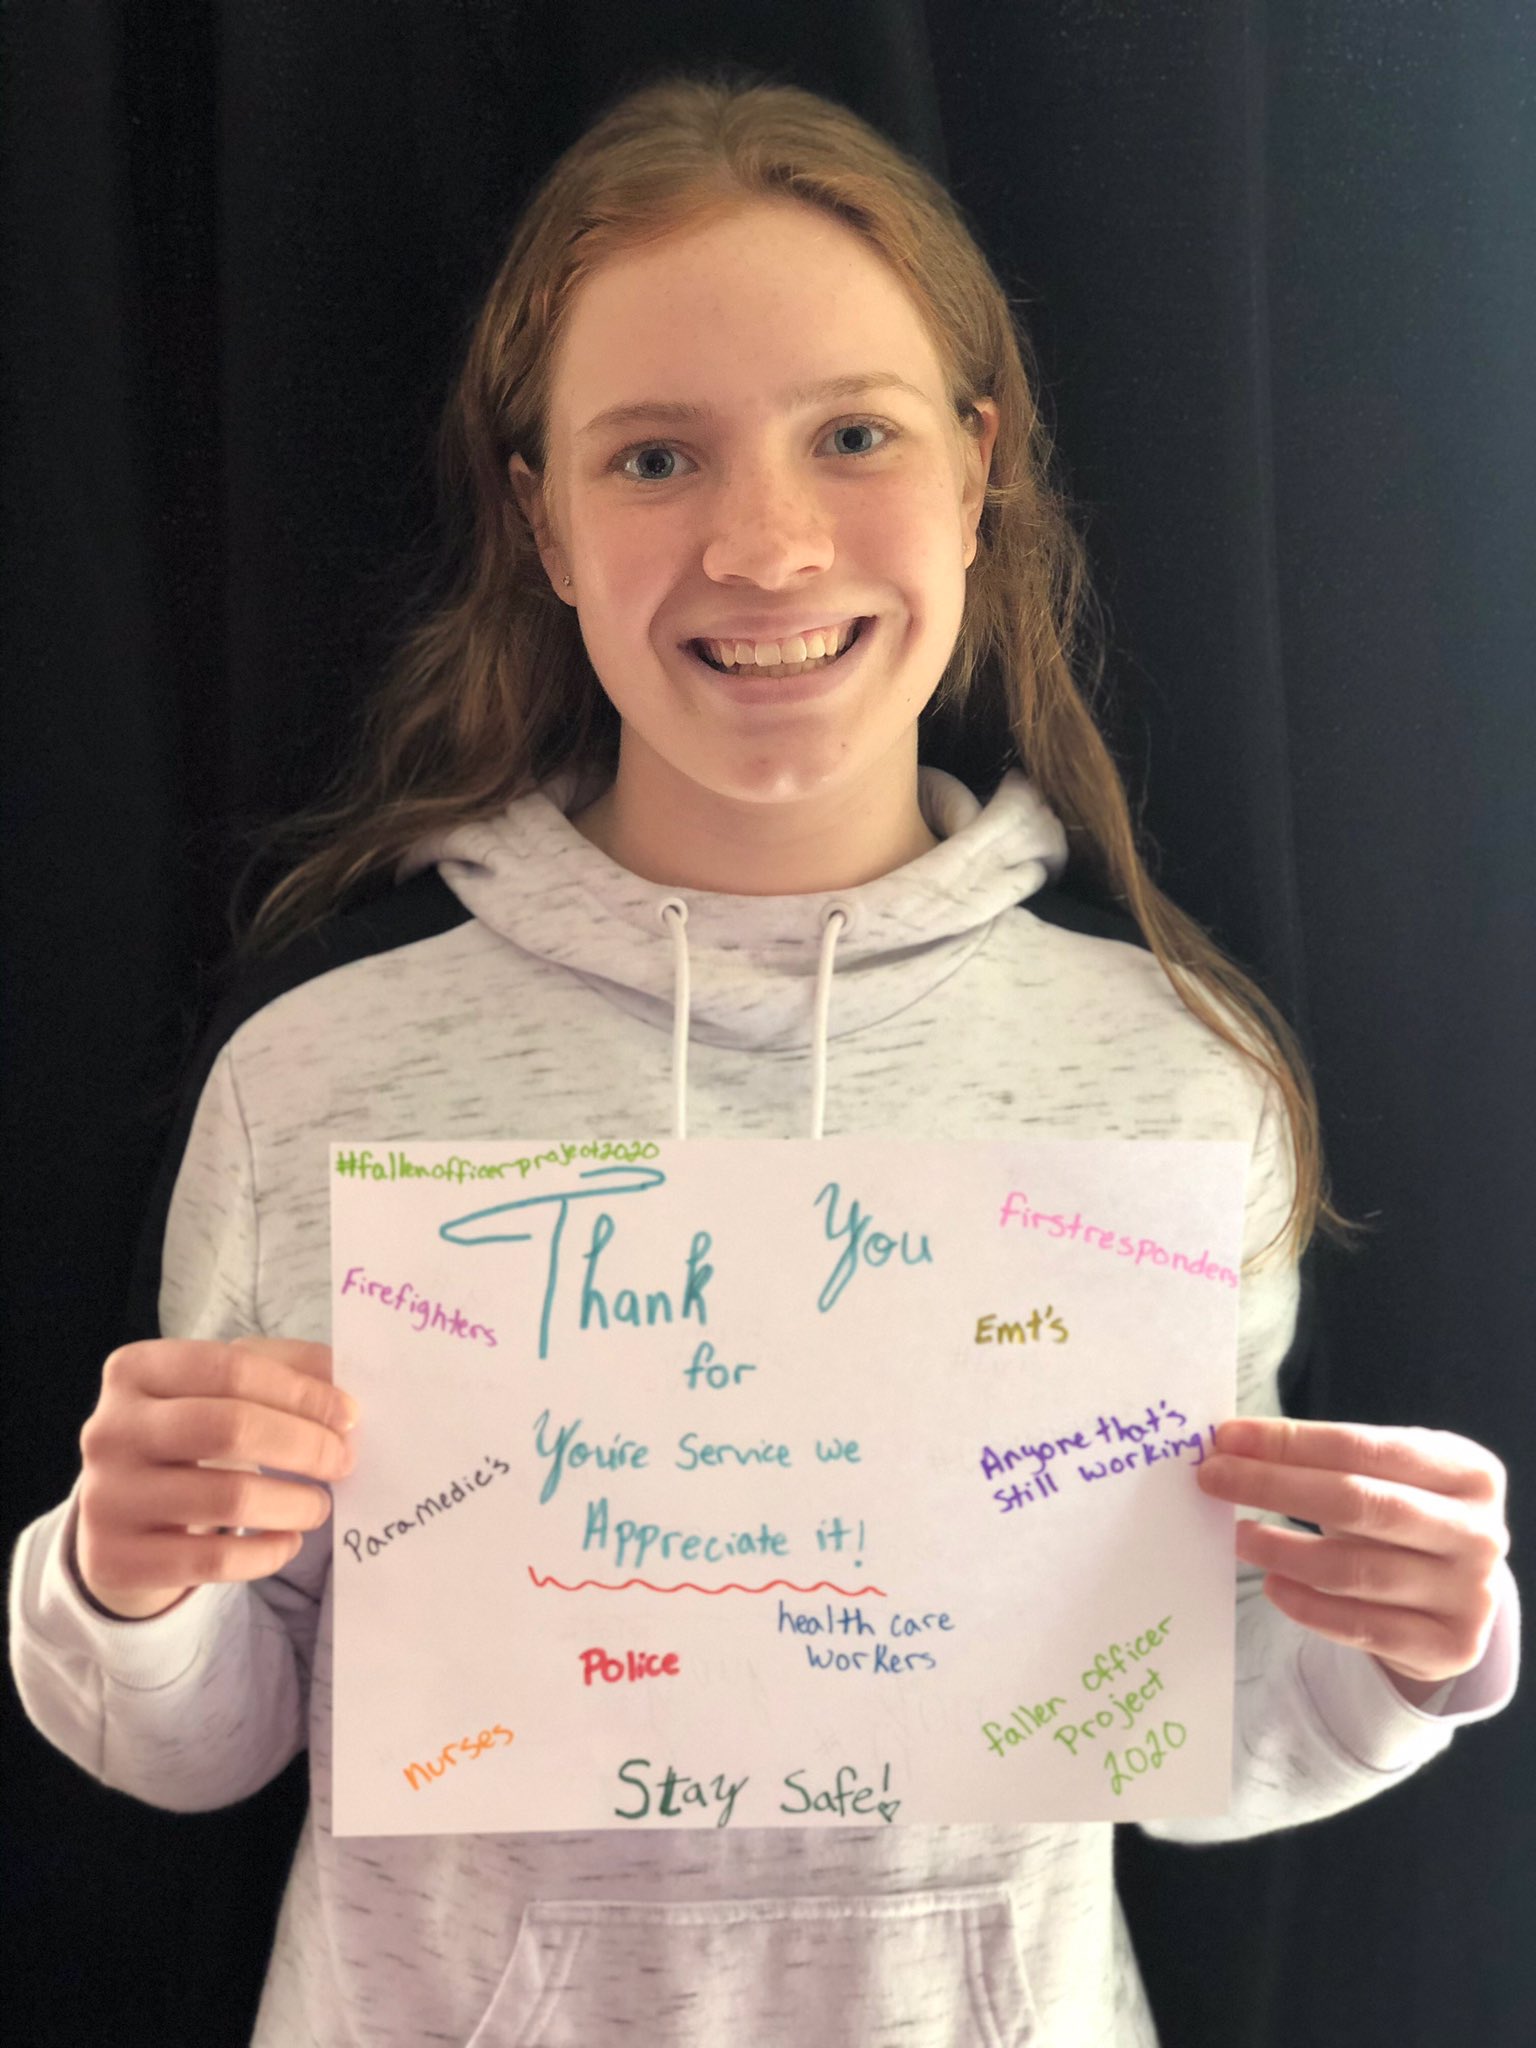 #fallenofficerproject2020
Thank You
for
You're Service we
Appreciate it!
firstresponders
Firefighters
Emt's
Anyone that's
still working!
Paramedic's
Police
health care
workers
nurses
fallen officer
Project
2020
Stay Safe!